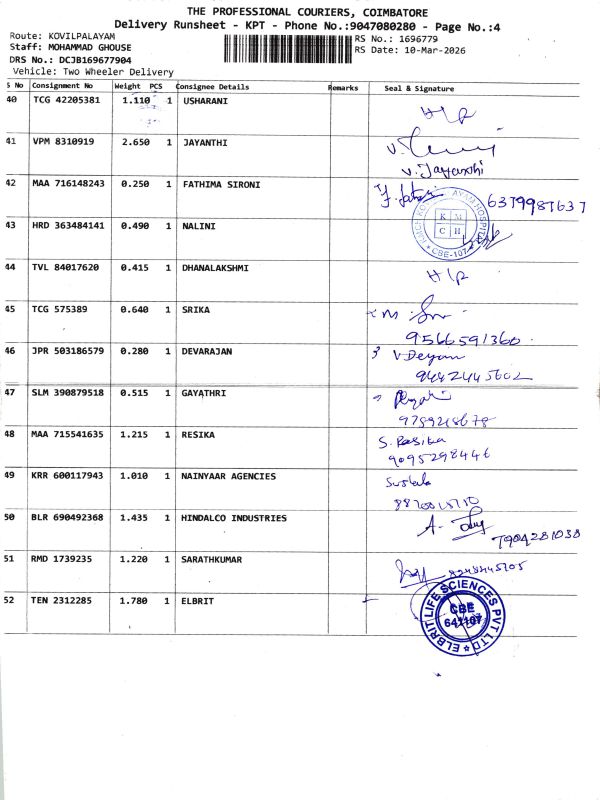 THE PROFESSIONAL COURIERS, COIMBATORE
Delivery Runsheet - KPT - Phone No.:9047080280 - Page No.:4
Route: KOVILPALAYAM
RS No.: 1696779
Staff: MOHAMMAD GHOUSE
RS Date: 10-Mar-2026
DRS No.: DCJB169677904
Vehicle: Two Wheeler Delivery
S No Consignment No Weight PCS Consignee Details Remarks Seal & Signature
40 TCG 42205381 1.110 1 USHARANI
41 VPM 8310919 2.650 1 JAYANTHI
V. Jayanthi
42 MAA 716148243 0.250 1 FATHIMA SIRONI
6379987637
43 HRD 363484141 0.490 1 NALINI
K M C H
CBE-107
44 TVL 84017620 0.415 1 DHANALAKSHMI
45 TCG 575389 0.640 1 SRIKA
9566591360
46 JPR 503186579 0.280 1 DEVARAJAN
9442445602
47 SLM 390879518 0.515 1 GAYATHRI
48 MAA 715541635 1.215 1 RESIKA
S. Rasika
9095298446
49 KRR 600117943 1.010 1 NAINYAAR AGENCIES
50 BLR 690492368 1.435 1 HINDALCO INDUSTRIES
7904281038
51 RMD 1739235 1.220 1 SARATHKUMAR
52 TEN 2312285 1.780 1 ELBRIT
ELBRIT LIFE SCIENCES PVT LTD
CBE
641107